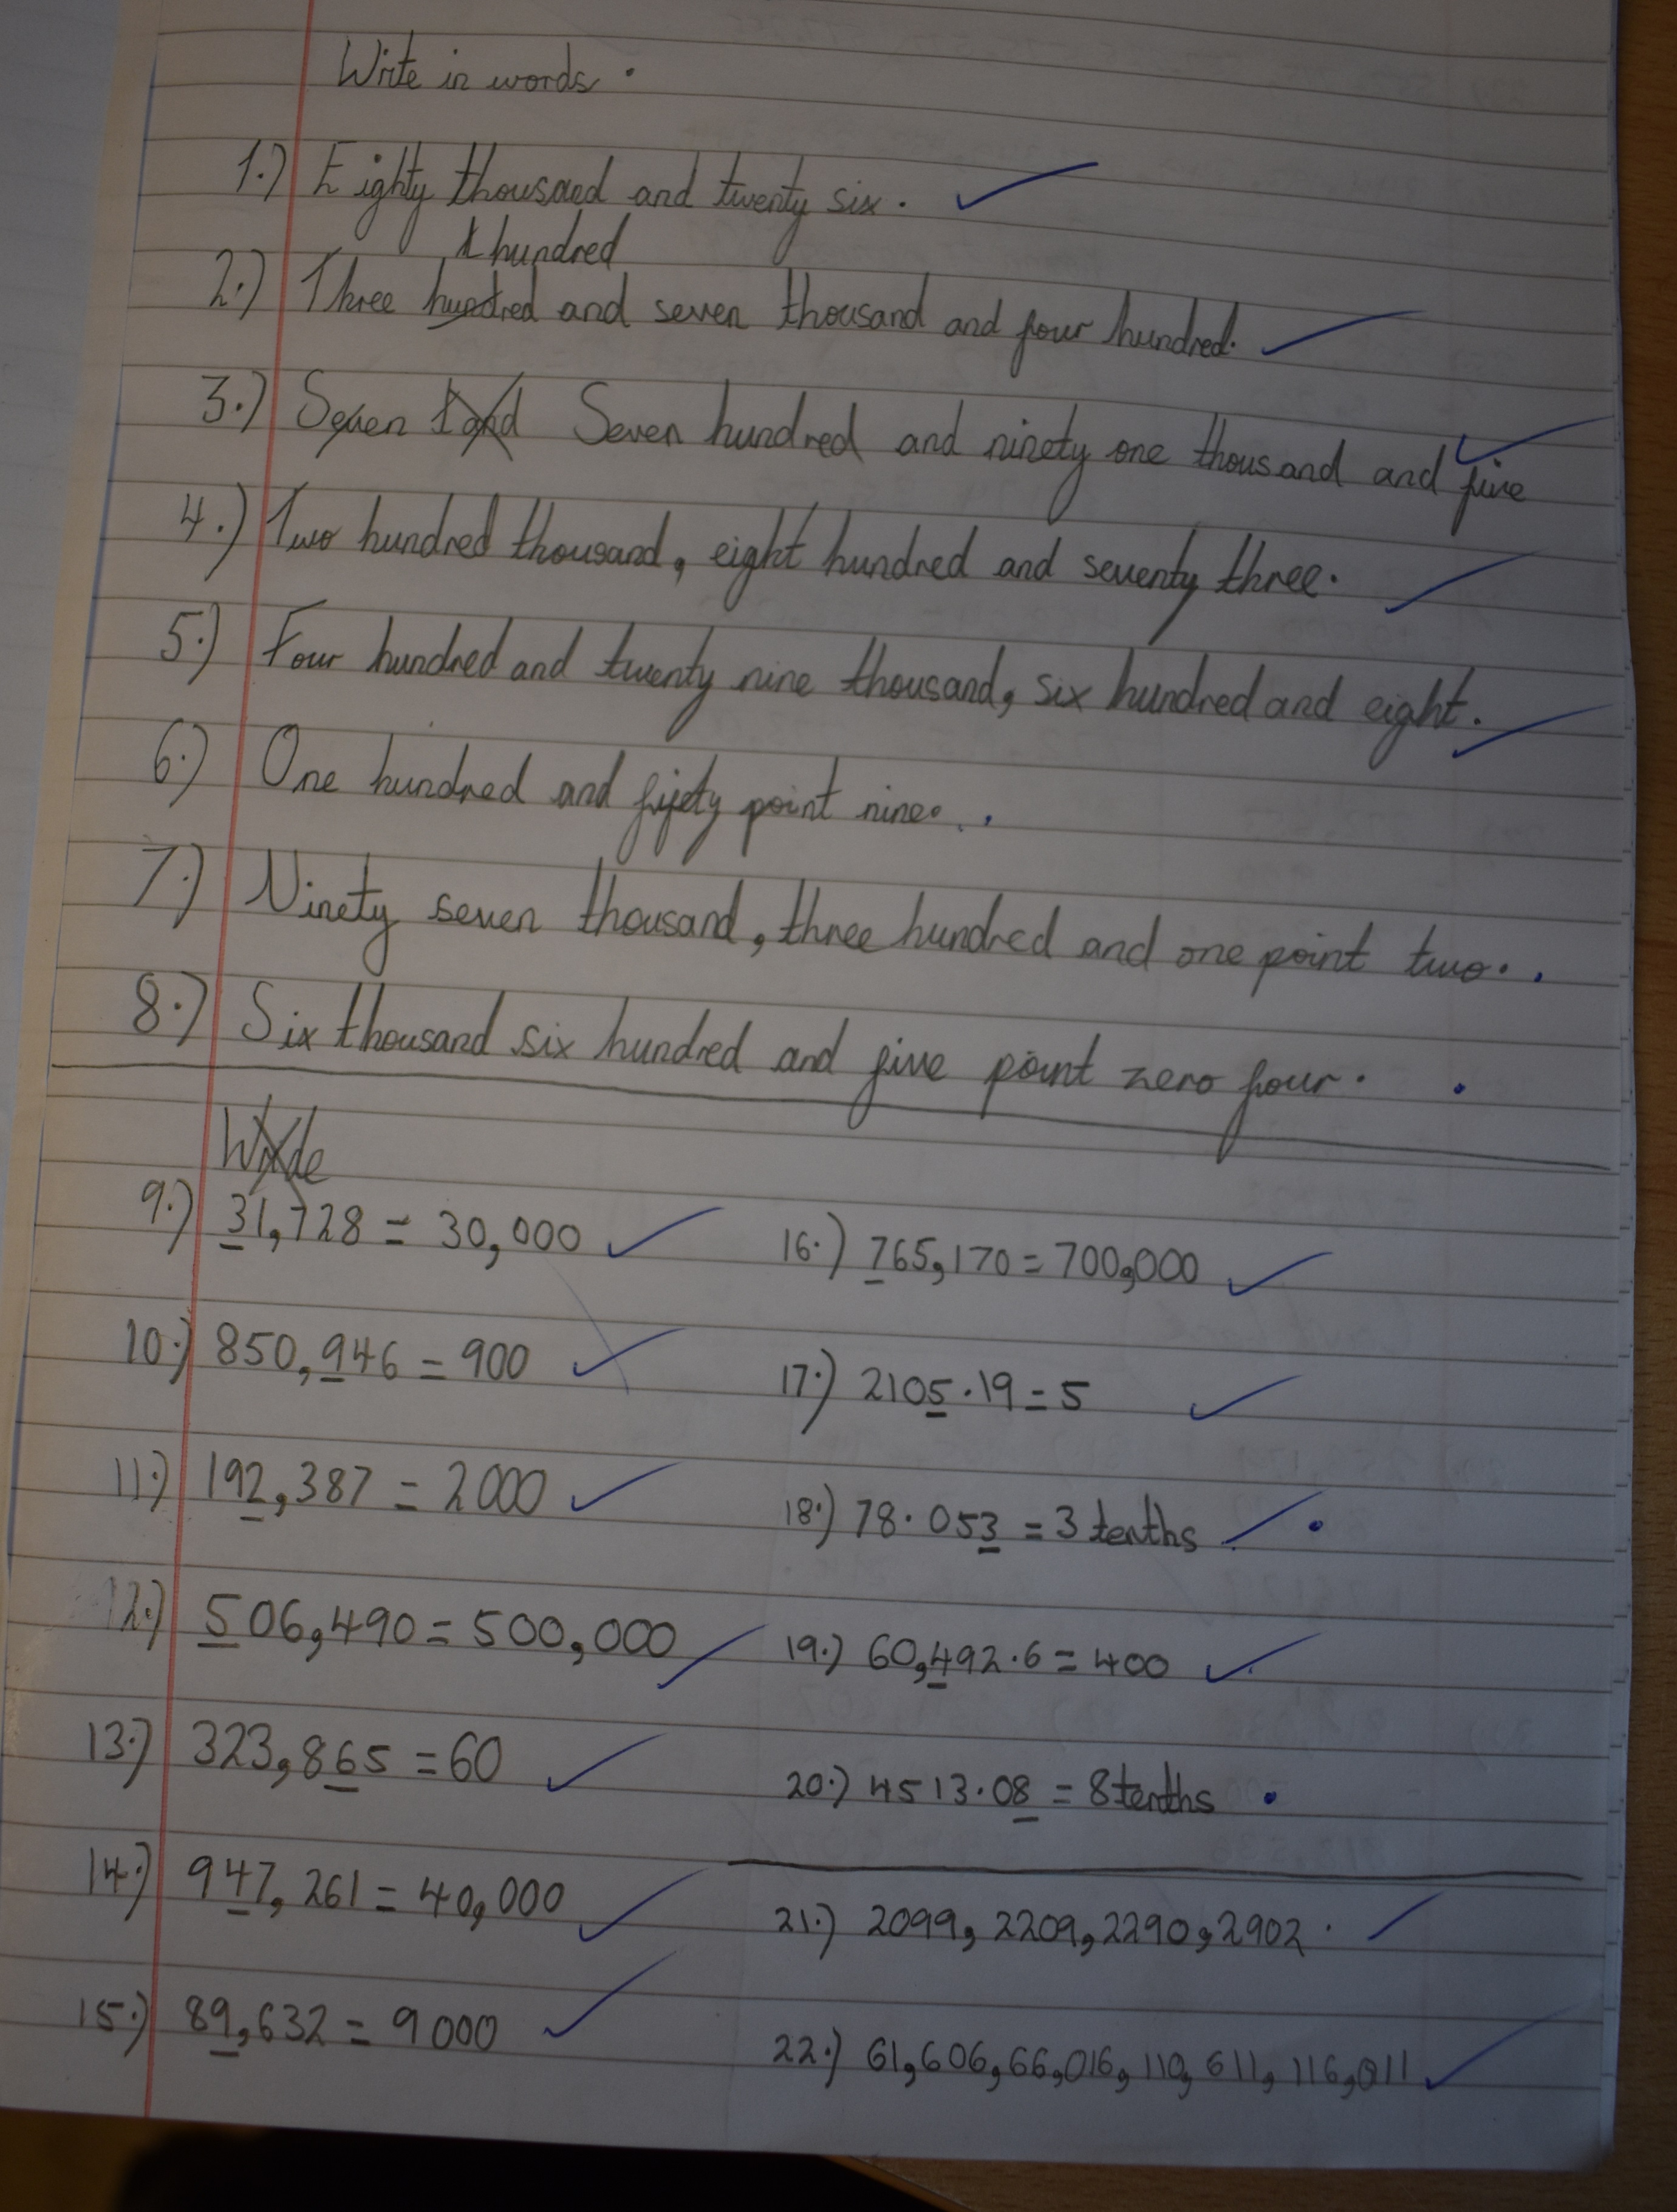 Write in words.
1.) Eighty thousand and twenty six.
hundred
2.) Three hundred and seven thousand and four hundred.
3.) Seven Seven hundred and ninety one thousand and five
4.) Two hundred thousand, eight hundred and seventy three.
5.) Four hundred and twenty nine thousand, six hundred and eight.
6.) One hundred and fifety point nine.
7.) Ninety seven thousand, three hundred and one point two.
8.) Six thousand six hundred and five point zero four.
9.) 31,728 = 30,000
10.) 850,946 = 900
11.) 192,387 = 2000
12.) 506,490 = 500,000
13.) 323,865 = 60
14.) 947,261 = 40,000
15.) 89,632 = 9000
16.) 765,170 = 700,000
17.) 2105.19 = 5
18.) 78.053 = 3 tenths
19.) 60,492.6 = 400
20.) 4513.08 = 8 tenths
21.) 2099, 2209, 2290, 2902.
22.) 61,606, 66,016, 110,611, 116,011